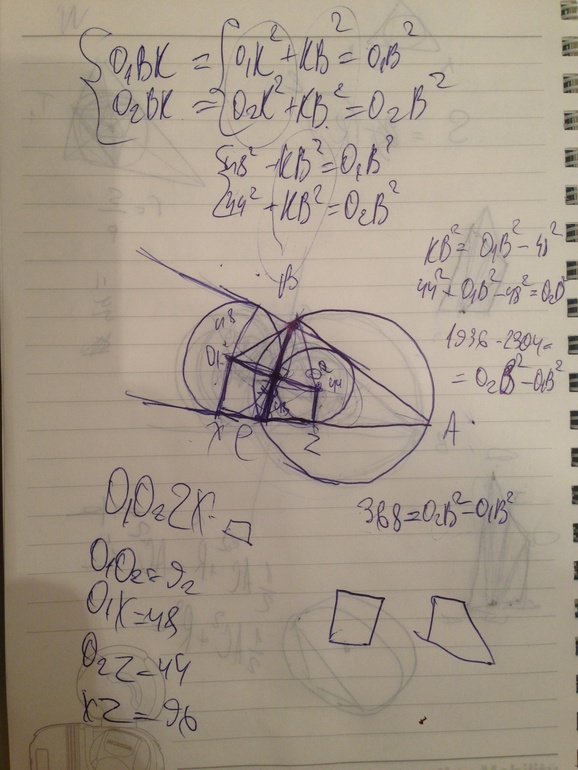 O₁BK = { O₁K² + KB² = O₁B²
O₂BK = { O₂K² + KB² = O₂B²
{ 48² + KB² = O₁B²
44² + KB² = O₂B²
KB² = O₁B² - 48²
44² + O₁B² - 48² = O₂B²
1936 - 2304 =
= O₂B² - O₁B²
B
48
O₁
O₂
44
X
C
Z
A
O₁O₂ZX -
368 = O₂B² - O₁B²
O₁O₂ = 92
O₁X = 48
O₂Z = 44
XZ = 96